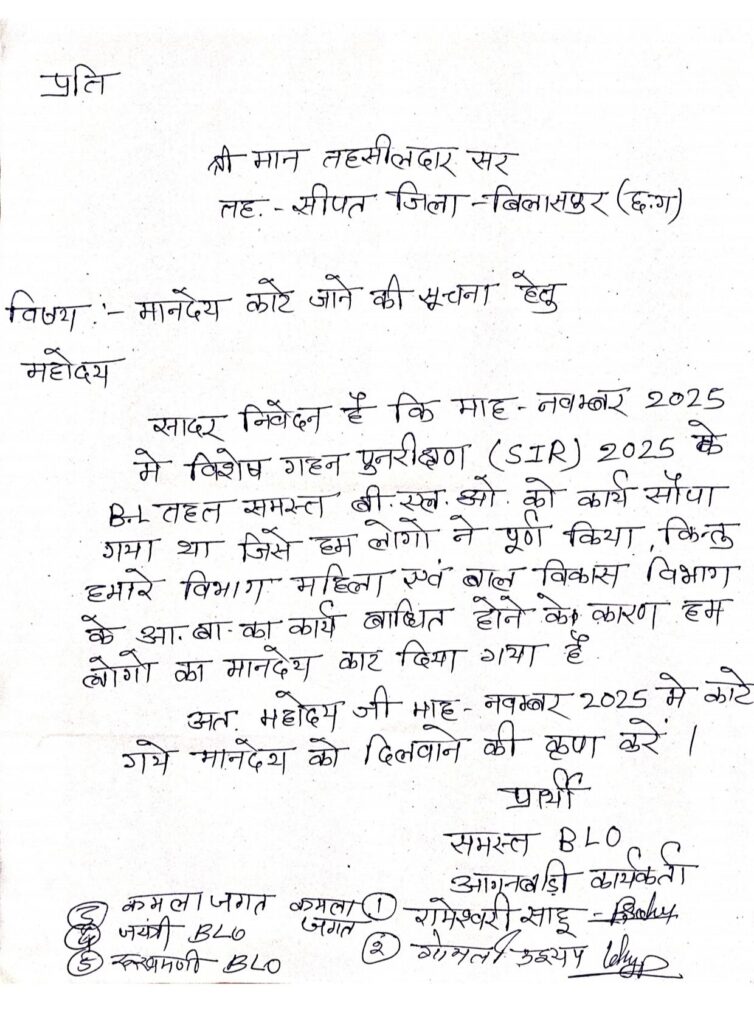 प्रति
श्री मान तहसीलदार सर
तह.- सीपत जिला - बिलासपुर (छ:ग)
विषय :- मानदेय काटे जाने की सूचना हेतु
महोदय
सादर निवेदन है कि माह - नवम्बर 2025
मे विशेष गहन पुनरीक्षण (SIR) 2025 के
B.L तहत समस्त बी.एल.ओ. को कार्य सौपा
गया था जिसे हम लोगों ने पूर्ण किया, किन्तु
हमारे विभाग महिला एवं बाल विकास विभाग
के आ.बा.का कार्य बाधित होने के कारण हम
लोगो का मानदेय काट दिया गया है
अत. महोदय जी माह - नवम्बर 2025 मे काटे
गये मानदेय को दिलवाने की कृपा करें ।
प्रार्थी
समस्त BLO
आगनबाड़ी कार्यकर्ता
① रामेश्वरी साहू -
② गोमती कश्यप
③ कमला जगत कमला
जगत
④ जयंत्री BLO
⑤ रूखमणी BLO